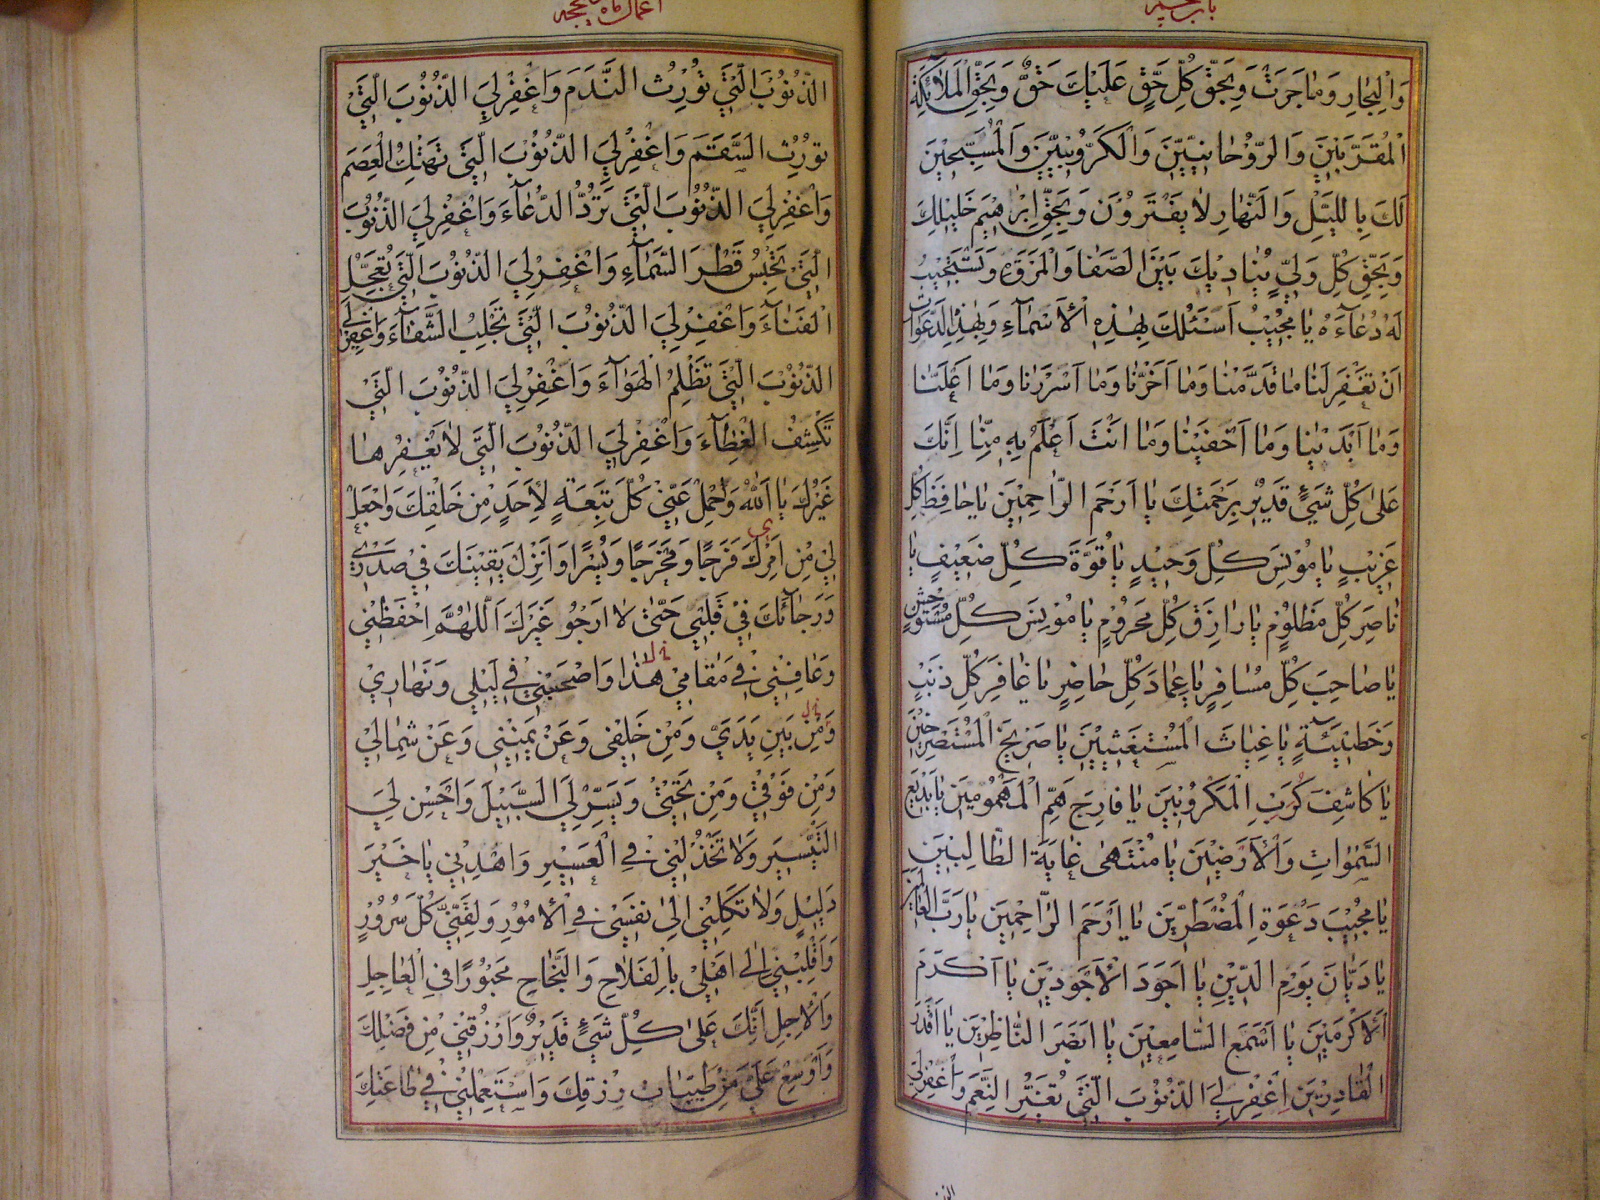 وَالْبِحَارِ وَمٰا جَرَتْ وَبِحَقِّ كُلِّ حَقٍّ عَلَيْكَ حَقٌّ وَبِحَقِّ الْمَلآئِكَةِ
الْمُقَرَّبِيْنَ وَالرَّوُحٰانِيّيْنَ وَالْكَرَّوُبِيّيْنَ وَالْمُسَبِّحِيْنَ
لَكَ بِاللَّيْلِ وَالنَّهٰارِ لاٰ يَفْتَرُوُنَ وَبِحَقِّ اِبْرٰاهِيْمَ خَلِيْلِكَ
وَبِحَقِّ كُلِّ وَلِيٍّ يُنٰادِيْكَ بَيْنَ الصَّفٰا وَالْمَرْوَةِ وَتَسْتَجِيْبُ
لَهُ دُعٰآءَهُ يٰا مُجِيْبُ اَسْئَلُكَ بِهٰذِهِ الْاَسْمٰآءِ وَبِهٰذِهِ الدَّعَوٰاتِ
اَنْ تَغْفِرَ لَنٰا مٰا قَدَّمْنٰا وَمٰا اَخَّرْنٰا وَمٰا اَسْرَرْنٰا وَمٰا اَعْلَنّٰا
وَمٰا اَبْدَيْنٰا وَمٰا اَخْفَيْنٰا وَمٰا اَنْتَ اَعْلَمُ بِهِ مِنّٰا اِنَّكَ
عَلىٰ كُلِّ شَيْءٍ قَدِيْرٌ بِرَحْمَتِكَ يٰا اَرْحَمَ الرّٰاحِمِيْنَ يٰا حٰافِظَ كُلِّ
غَرِيْبٍ يٰا مُوْنِسَ كُلِّ وَحِيْدٍ يٰا قُوَّةَ كُلِّ ضَعِيْفٍ يٰا
نٰاصِرَ كُلِّ مَظْلُوْمٍ يٰا رٰازِقَ كُلِّ مَحْرُوْمٍ يٰا مُوْنِسَ كُلِّ مُسْتَوْحِشٍ
يٰا صٰاحِبَ كُلِّ مُسٰافِرٍ يٰا عِمٰادَ كُلِّ حٰاضِرٍ يٰا غٰافِرَ كُلِّ ذَنْبٍ
وَخَطِيْئَةٍ يٰا غِيٰاثَ الْمُسْتَغِيْثِيْنَ يٰا صَرِيْخَ الْمُسْتَصْرِخِيْنَ
يٰا كٰاشِفَ كُرَبِ الْمَكْرُوْبِيْنَ يٰا فٰارِجَ هَمِّ الْمَهْمُوْمِيْنَ يٰا بَدِيْعَ
السَّمٰوٰاتِ وَالْاَرَضِيْنَ يٰا مُنْتَهىٰ غٰايَةِ الطّٰالِبِيْنَ
يٰا مُجِيْبَ دَعْوَةِ الْمُضْطَرِّيْنَ يٰا اَرْحَمَ الرّٰاحِمِيْنَ يٰا رَبَّ الْعٰالَمِيْنَ
يٰا دَيّٰانَ يَوْمِ الدِّيْنِ يٰا اَجْوَدَ الْاَجْوَدِيْنَ يٰا اَكْرَمَ
الْاَكْرَمِيْنَ يٰا اَسْمَعَ السّٰامِعِيْنَ يٰا اَبْصَرَ النّٰاظِرِيْنَ يٰا اَقْدَرَ
الْقٰادِرِيْنَ اِغْفِرْ لِيَ الذُّنُوْبَ الَّتِيْ تُغَيِّرُ النِّعَمَ وَاغْفِرْ لِيَ
اعمال ماه ذيحجه
الذُّنُوْبَ الَّتِيْ تُوْرِثُ النَّدَمَ وَاغْفِرْ لِيَ الذُّنُوْبَ الَّتِيْ
تُوْرِثُ السَّقَمَ وَاغْفِرْ لِيَ الذُّنُوْبَ الَّتِيْ تَهْتِكُ الْعِصَمَ
وَاغْفِرْ لِيَ الذُّنُوْبَ الَّتِيْ تَرُدُّ الدُّعٰآءَ وَاغْفِرْ لِيَ الذُّنُوْبَ
الَّتِيْ تَحْبِسُ قَطْرَ السَّمٰآءِ وَاغْفِرْ لِيَ الذُّنُوْبَ الَّتِيْ تُعَجِّلُ
الْفَنٰآءَ وَاغْفِرْ لِيَ الذُّنُوْبَ الَّتِيْ تَجْلِبُ الشَّقٰآءَ وَاغْفِرْ لِيَ
الذُّنُوْبَ الَّتِيْ تُظْلِمُ الْهَوٰآءَ وَاغْفِرْ لِيَ الذُّنُوْبَ الَّتِيْ
تَكْشِفُ الْغِطٰآءَ وَاغْفِرْ لِيَ الذُّنُوْبَ الَّتِيْ لاٰ يَغْفِرُهٰا
غَيْرُكَ يٰا اَللهُ وَاحْمِلْ عَنِّيْ كُلَّ تَبِعَةٍ لِاَحَدٍ مِنْ خَلْقِكَ وَاجْعَلْ
لِيْ مِنْ اَمْرِكَ فَرَجًا وَمَخْرَجًا وَيُسْرًا وَاَنْزِلْ يَقِيْنَكَ فِيْ صَدْرِيْ
وَرَجٰائَكَ فِيْ قَلْبِيْ حَتّىٰ لاٰ اَرْجُوَ غَيْرَكَ اَللّٰهُمَّ احْفَظْنِيْ
وَعٰافِنِيْ فِيْ مَقٰامِيْ هٰذٰا وَاصْحَبْنِيْ فِيْ لَيْلِيْ وَنَهٰارِيْ
وَمِنْ بَيْنِ يَدَيَّ وَمِنْ خَلْفِيْ وَعَنْ يَمِيْنِيْ وَعَنْ شِمٰالِيْ
وَمِنْ فَوْقِيْ وَمِنْ تَحْتِيْ وَيَسِّرْ لِيَ السَّبِيْلَ وَاَحْسِنْ لِيَ
التَّيْسِيْرَ وَلاٰ تَخْذُلْنِيْ فِي الْعَسِيْرِ وَاهْدِنِيْ يٰا خَيْرَ
دَلِيْلٍ وَلاٰ تَكِلْنِيْ اِلىٰ نَفْسِيْ فِي الْاُمُوْرِ وَلَقِّنِيْ كُلَّ سُرُوْرٍ
وَاقْلِبْنِيْ اِلىٰ اَهْلِيْ بِالْفَلاٰحِ وَالنَّجٰاحِ مَحْبُوْرًا فِي الْعٰاجِلِ
وَالْاٰجِلِ اِنَّكَ عَلىٰ كُلِّ شَيْءٍ قَدِيْرٌ وَارْزُقْنِيْ مِنْ فَضْلِكَ
وَاَوْسِعْ عَلَيَّ مِنْ طَيِّبٰاتِ رِزْقِكَ وَاسْتَعْمِلْنِيْ فِيْ طٰاعَتِكَ